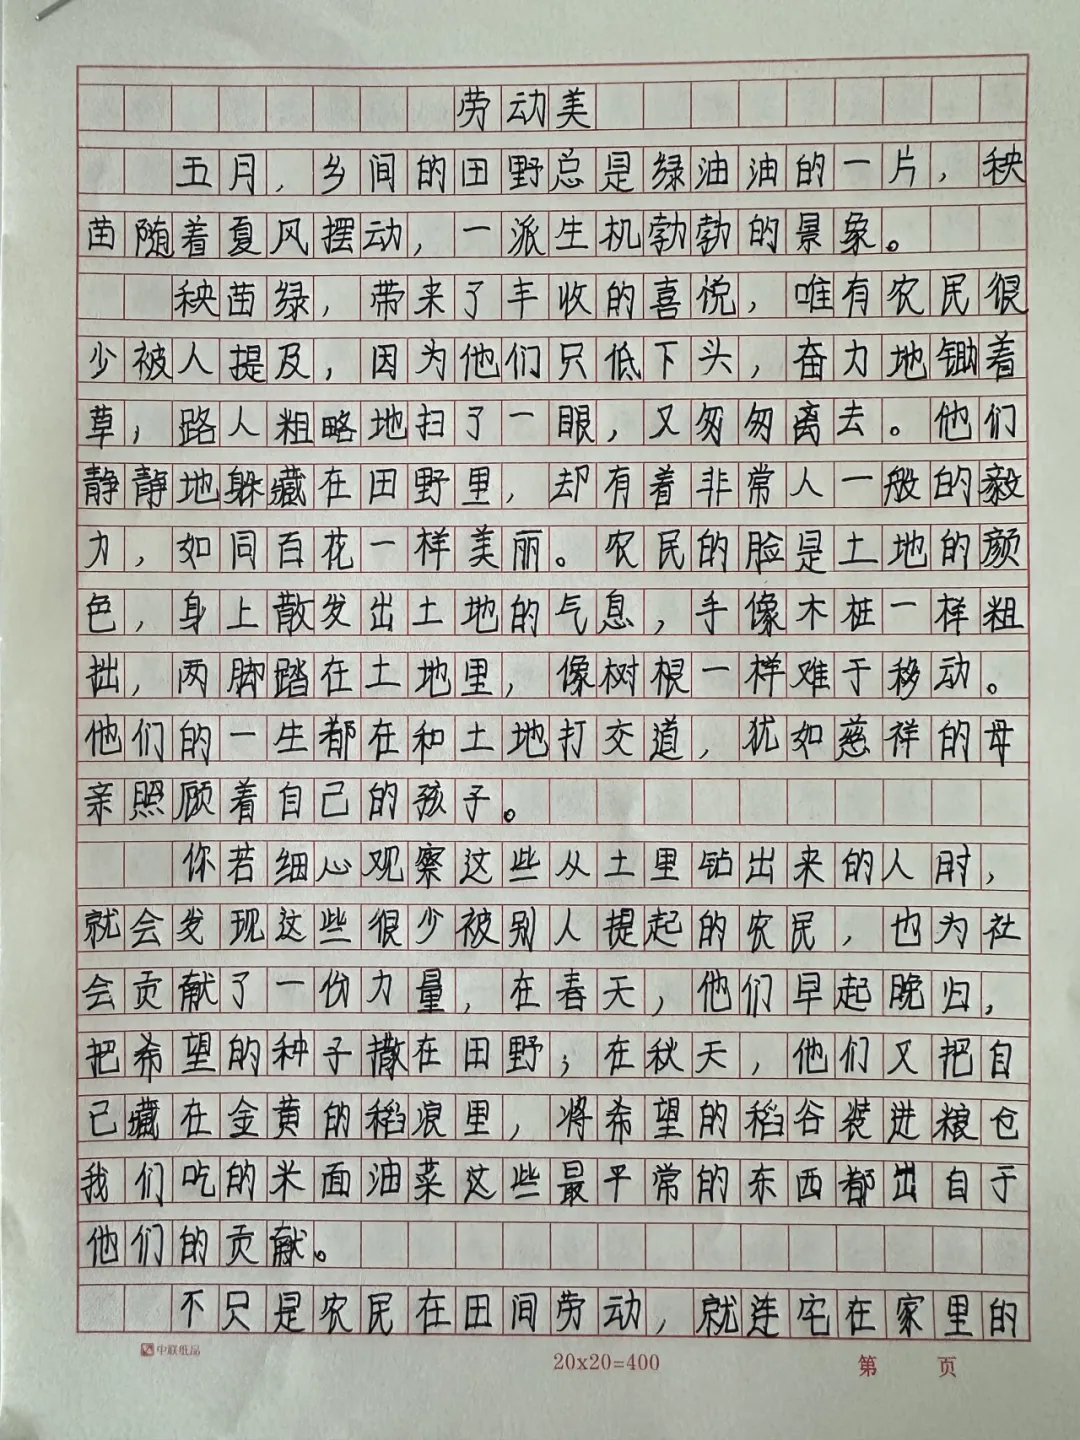 劳动美
五月，乡间的田野总是绿油油的一片，秧
苗随着夏风摆动，一派生机勃勃的景象。
秧苗绿，带来了丰收的喜悦，唯有农民很
少被人提及，因为他们只低下头，奋力地锄着
草，路人粗略地扫了一眼，又匆匆离去。他们
静静地躲藏在田野里，却有着非常人一般的毅
力，如同百花一样美丽。农民的脸是土地的颜
色，身上散发出土地的气息，手像木桩一样粗
拙，两脚踏在土地里，像树根一样难于移动。
他们的一生都在和土地打交道，犹如慈祥的母
亲照顾着自己的孩子。
你若细心观察这些从土里钻出来的人时，
就会发现这些很少被别人提起的农民，也为社
会贡献了一份力量，在春天，他们早起晚归，
把希望的种子撒在田野；在秋天，他们又把自
己藏在金黄的稻浪里，将希望的稻谷装进粮仓
我们吃的米面油菜这些最平常的东西都出自于
他们的贡献。
不只是农民在田间劳动，就连宅在家里的
中联纸品
20x20=400
第 页